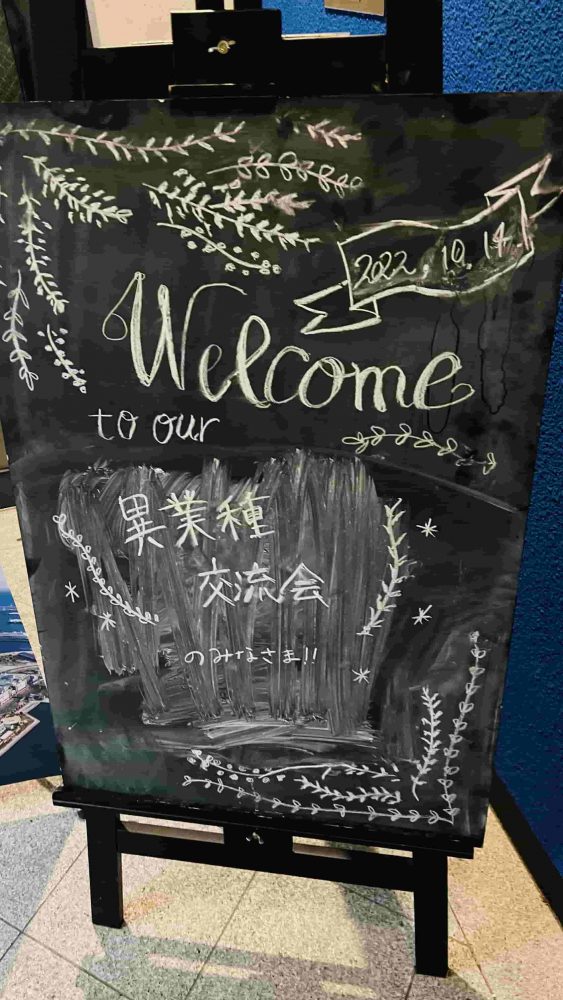 2022.10.14
Welcome
to our
異業種
交流会
のみなさま!!